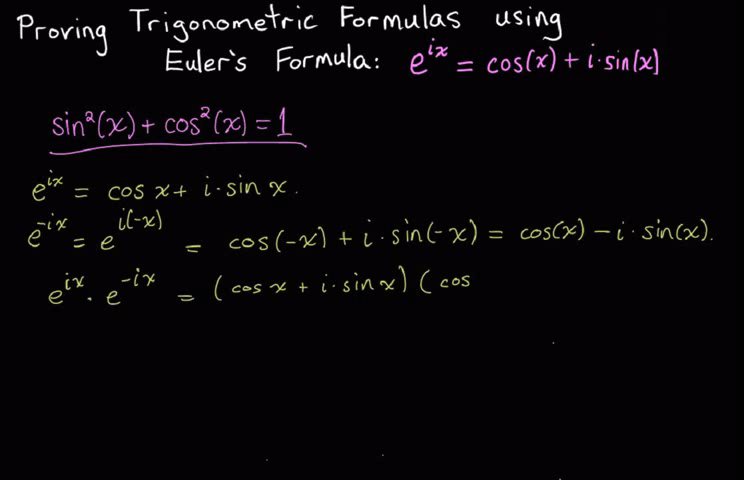 Proving Trigonometric Formulas using
Euler's Formula: e^{ix} = cos(x) + i·sin(x)
sin²(x) + cos²(x) = 1
e^{ix} = cos x + i·sin x.
e^{-ix} = e^{i(-x)} = cos(-x) + i·sin(-x) = cos(x) - i·sin(x).
e^{ix} · e^{-ix} = (cos x + i·sin x) (cos